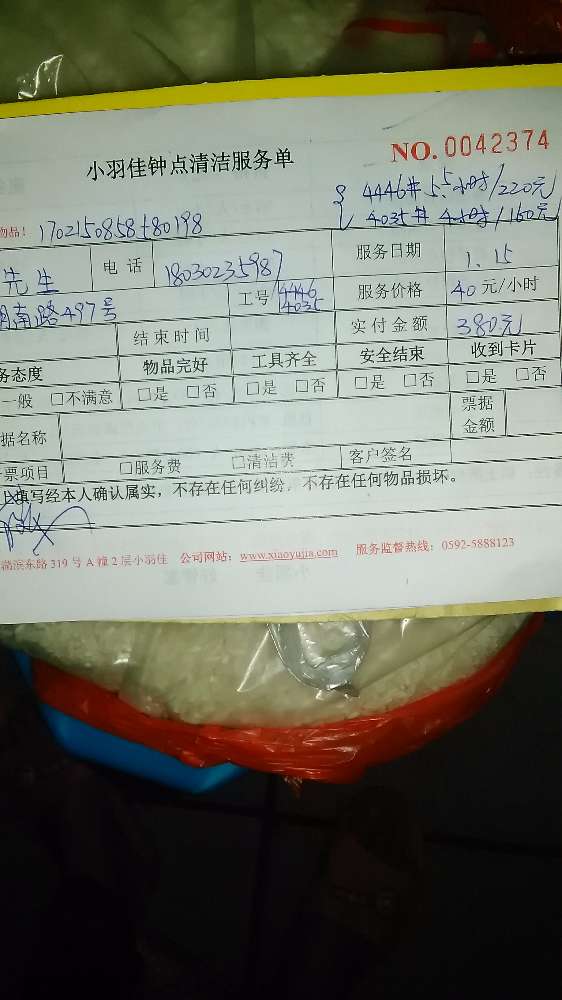 小羽佳钟点清洁服务单
NO. 0042374
4446# 5.5小时/220元
4035# 4小时/160元
物品! 1702150858480198
先生 电话 18030235987 服务日期 1.15
南路497号 工号 4446 4035 服务价格 40元/小时
结束时间 实付金额 380元
务态度 物品完好 工具齐全 安全结束 收到卡片
一般 □不满意 □是 □否 □是 □否 □是 □否 □是 □否
据名称 票据金额
票项目 □服务费 □清洁费 客户签名
上填写经本人确认属实,不存在任何纠纷,不存在任何物品损坏。
滨东路319号A幢2层小羽佳 公司网站:www.xiaoyujia.com 服务监督热线:0592-5888123